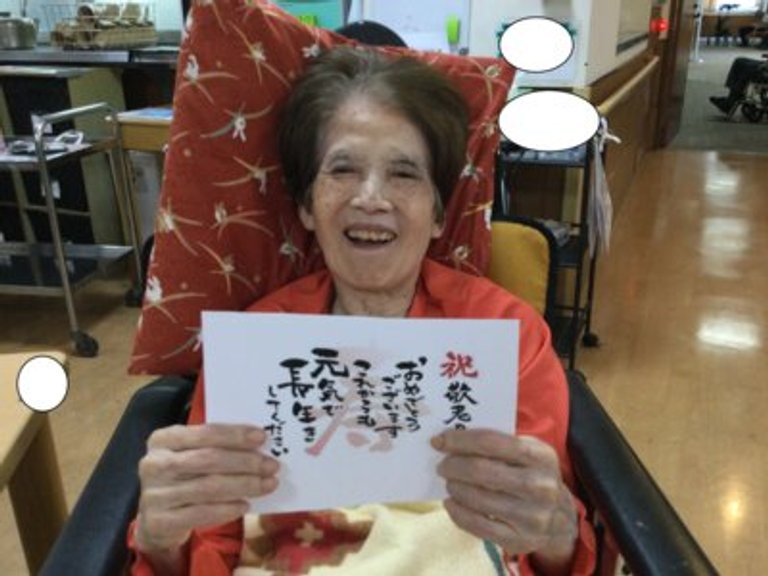 祝 敬老
おめでとう
ございます
これからも
元気で
長生き
してください
寿